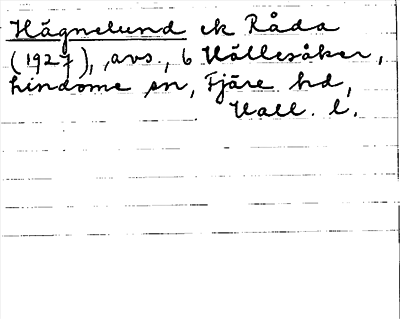 Hägnelund ek Råda
(1927), avs., 6 Hällesåker,
Lindome sn, Fjäre hd,
Hall. l.